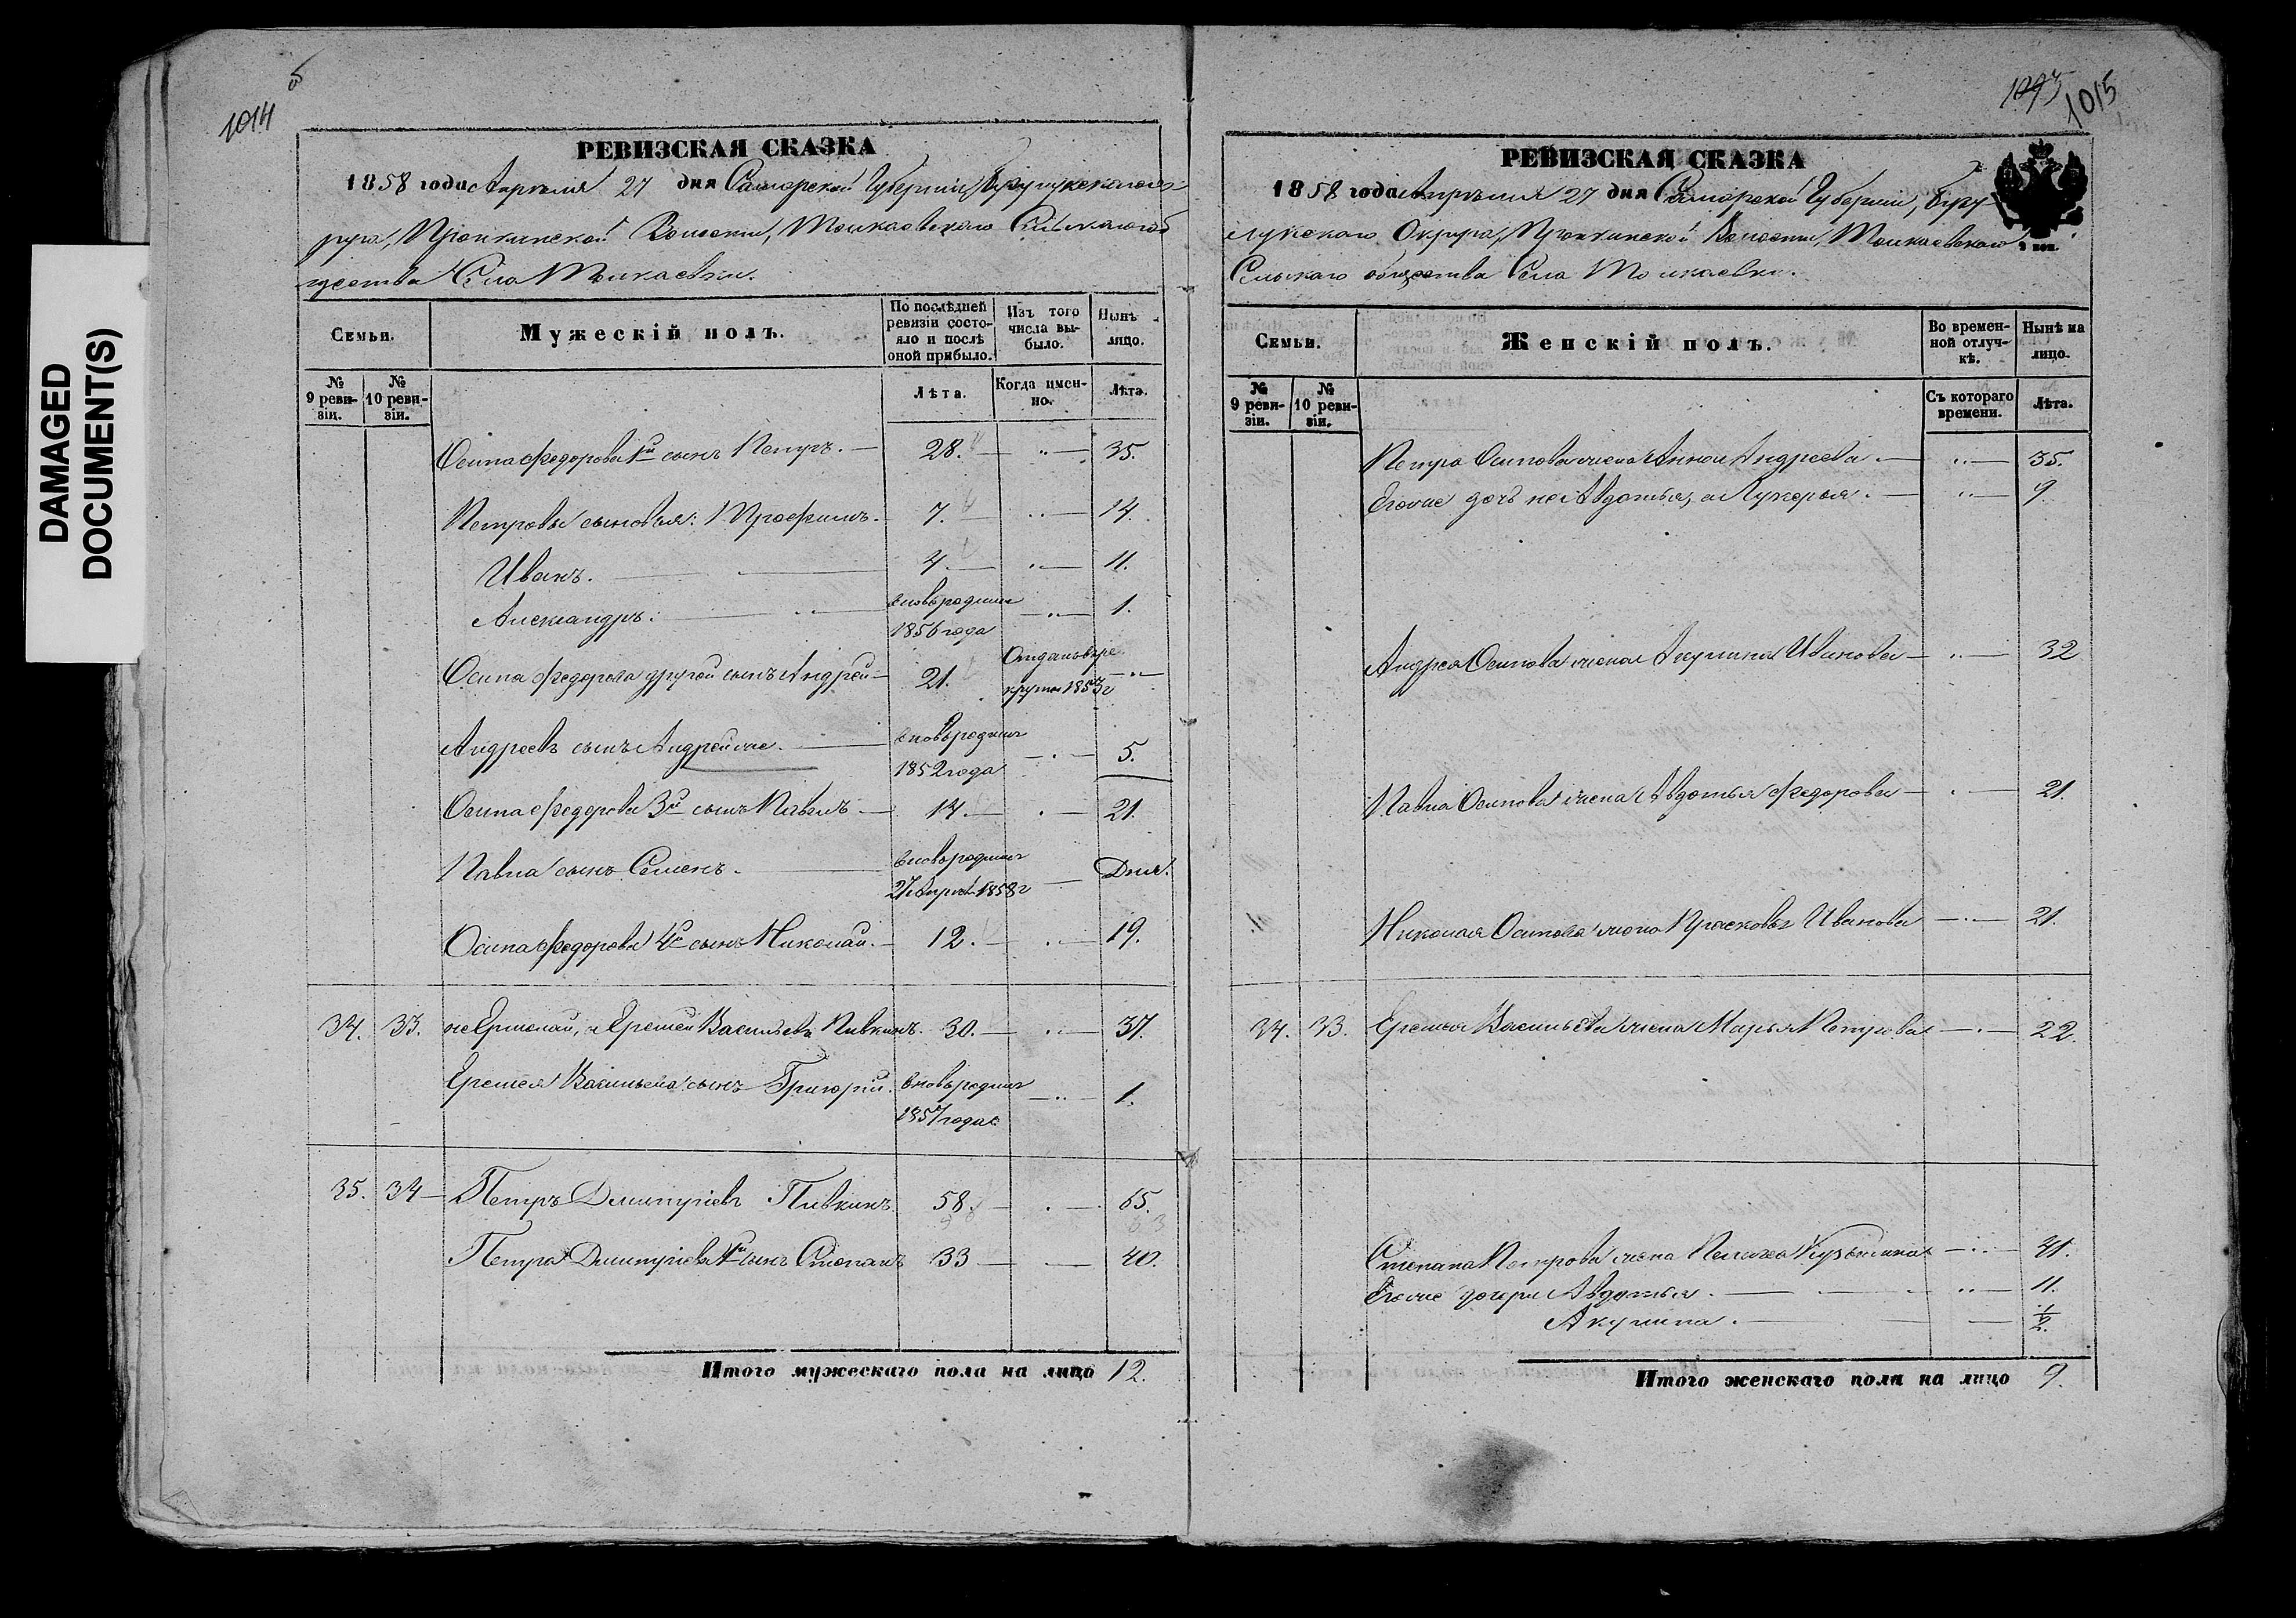 DAMAGED
DOCUMENT(S)
1014
б
РЕВИЗСКАЯ СКАЗКА
1858 года Апрѣля 27 дня Самарской Губерніи, Бузулукскаго Ок-
руга, Пронькинской Волости, Толкаевскаго Сельскаго об
щества Села Толкаевки.
Семьи. Мужескій полъ. По послѣдней ревизіи состояло и послѣ оной прибыло. Изъ того числа выбыло. Нынѣ на лицо.
№ 9 ревизіи. № 10 ревизіи. Лѣта. Когда именно. Лѣта.
Осипа Федорова 1й сынъ Петръ. 28. 35.
Петровы сыновья: 1 Трофимъ. 7. 14.
Иванъ. 4. 11.
Александръ. вновьрожден 1856 года 1.
Осипа Федорова другой сынъ Андрей 21. Отданъ въ рекруты 1853 г
Андреевъ сынъ Андрей же. вновьрожден 1852 года 5.
Осипа Федорова 3й сынъ Павелъ 14. 21.
Павла сынъ Семенъ. вновьрожден 27 Апрѣл 1858 г Дня.
Осипа Федорова 4й сынъ Николай. 12. 19.
34. 33. не Ермолай, а Еремей Васильевъ Пивкинъ. 30. 37.
Еремея Васильева сынъ Григорій. вновьрожден 1857 года 1.
35. 34 Петръ Дмитріевъ Пивкинъ. 58. 65.
Петра Дмитріева 1й сынъ Степанъ 33 40.
Итого мужескаго пола на лицо 12.
1015
РЕВИЗСКАЯ СКАЗКА
1858 года Апрѣля 27 дня Самарской Губерніи, Бузу
лукскаго Округа, Пронькинской Волости, Толкаевскаго
Сельскаго общества Села Толкаевки.
Семьи. Женскій полъ. Во временной отлучкѣ. Нынѣ на лицо.
№ 9 ревизіи. № 10 ревизіи. Съ котораго времени. Лѣта.
Петра Осипова жена Анна Андреева. 35.
Егоже дочь не Авдотья, а Лукерья. 9.
Андрея Осипова жена Акулина Иванова 32
Павла Осипова жена Авдотья Федорова 21.
Николая Осипова жена Прасковья Иванова 21.
34. 33. Еремея Васильева жена Марья Петрова 22.
Степана Петрова жена Пелагея Кузьмина 41.
Егоже дочери Авдотья. 11.
Акулина. 1/2.
Итого женскаго пола на лицо 9.